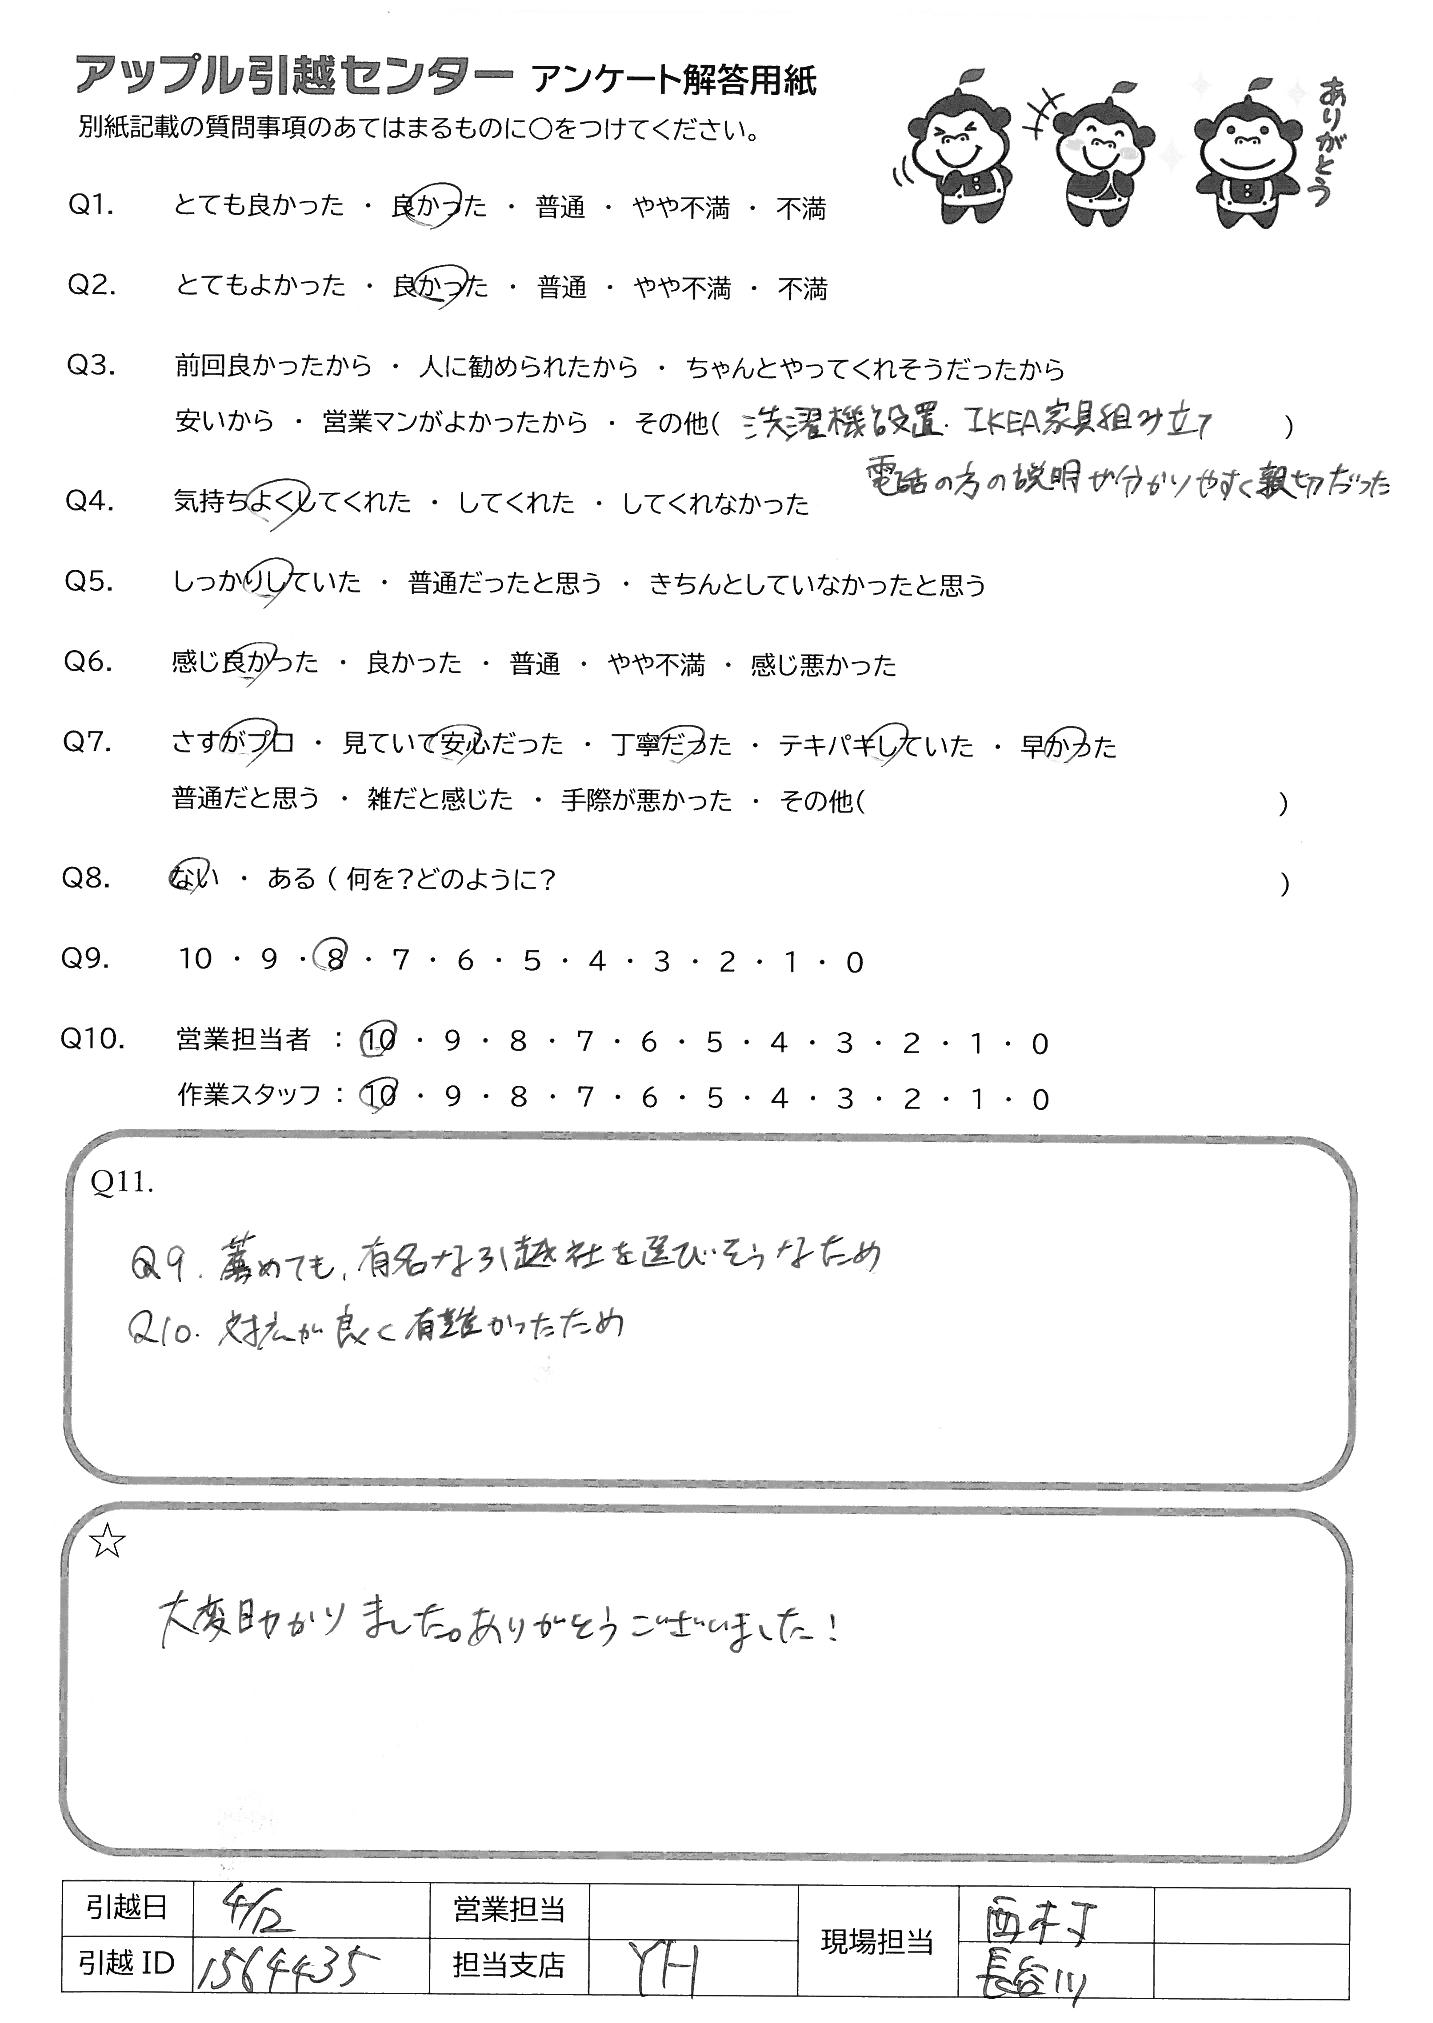 アップル引越センター アンケート解答用紙
別紙記載の質問事項のあてはまるものに〇をつけてください。
ありがとう
Q1. とても良かった ・ 良かった ・ 普通 ・ やや不満 ・ 不満
Q2. とてもよかった ・ 良かった ・ 普通 ・ やや不満 ・ 不満
Q3. 前回良かったから ・ 人に勧められたから ・ ちゃんとやってくれそうだったから
安いから ・ 営業マンがよかったから ・ その他( 洗濯機設置・IKEA家具組み立て )
電話の方の説明が分かりやすく親切だった
Q4. 気持ちよくしてくれた ・ してくれた ・ してくれなかった
Q5. しっかりしていた ・ 普通だったと思う ・ きちんとしていなかったと思う
Q6. 感じ良かった ・ 良かった ・ 普通 ・ やや不満 ・ 感じ悪かった
Q7. さすがプロ ・ 見ていて安心だった ・ 丁寧だった ・ テキパキしていた ・ 早かった
普通だと思う ・ 雑だと感じた ・ 手際が悪かった ・ その他( )
Q8. ない ・ ある ( 何を?どのように? )
Q9. 10 ・ 9 ・ 8 ・ 7 ・ 6 ・ 5 ・ 4 ・ 3 ・ 2 ・ 1 ・ 0
Q10. 営業担当者 : 10 ・ 9 ・ 8 ・ 7 ・ 6 ・ 5 ・ 4 ・ 3 ・ 2 ・ 1 ・ 0
作業スタッフ : 10 ・ 9 ・ 8 ・ 7 ・ 6 ・ 5 ・ 4 ・ 3 ・ 2 ・ 1 ・ 0
Q11.
Q9. 薦めても、有名な引越社を選びそうなため
Q10. 対応が良く有難かったため
☆
大変助かりました。ありがとうございました!
引越日 4/12 営業担当 現場担当 西村
引越ID 1564435 担当支店 YH 長谷川